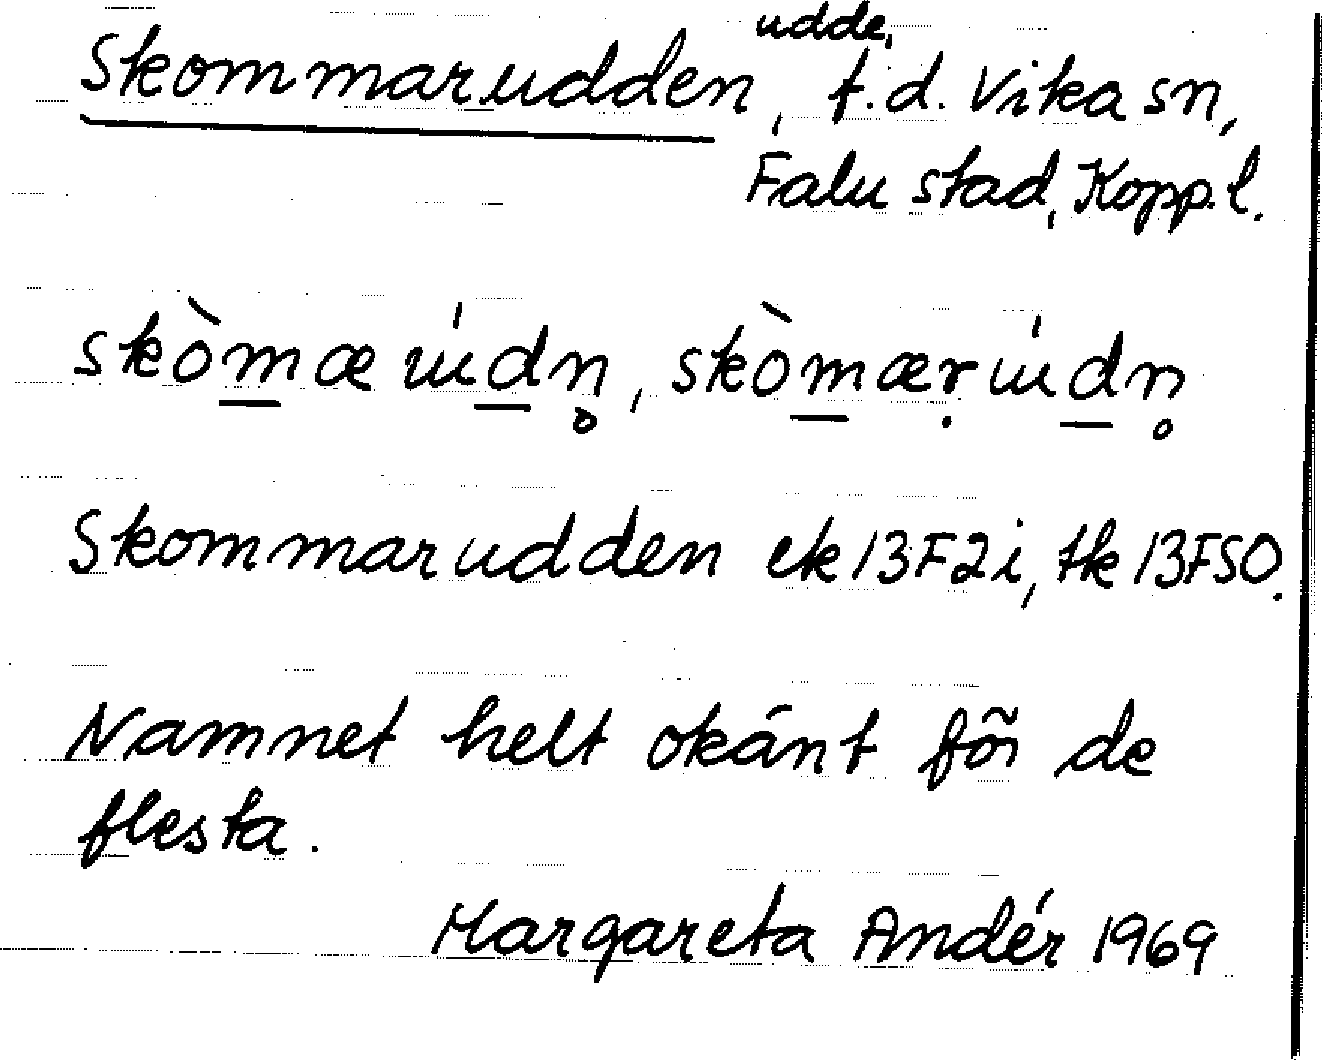 Skommarudden, udde, f.d. Vika sn,
Falu stad, Kopp.l.
skòm̲æ úd̲n̥, skòm̲æṛúd̲n̥
Skommarudden ek 13F2i, tk 13FSO.
Namnet helt okänt för de
flesta.
Margareta Andér 1969